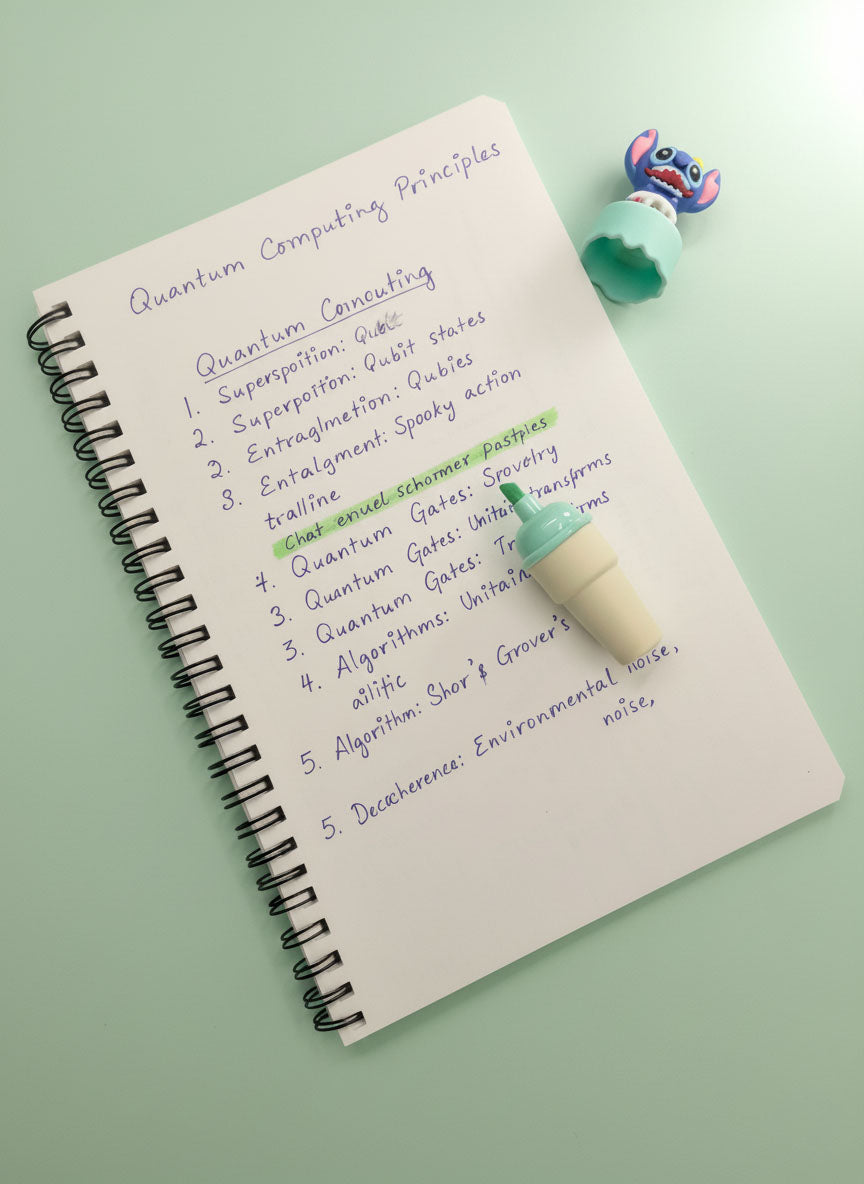 Quantum Computing Principles
Quantum Cornouting
1. Superspoition:
2. Superpoition: Qubit states
2. Entraglmetion: Qubies
3. Entalgment: Spooky action
tralline
Chat enuel schormer Pastples
4. Quantum Gates: Srovelry
3. Quantum Gates: transforms
3. Quantum Gates:
4. Algorithms: Unitain
ailific
5. Algorithm: Shor's Grover's
5. Decacherence: Environmental noise,
noise,